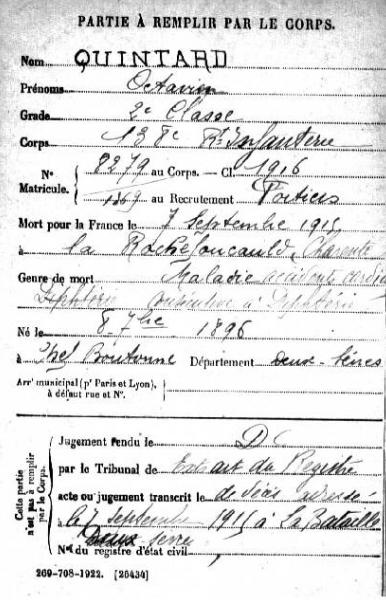 PARTIE À REMPLIR PAR LE CORPS.
Nom QUINTARD
Prénoms Octavien
Grade 2e Classe
Corps 138e Rt Infanterie
N° Matricule. 8279 au Corps. — Cl. 1916
1369 au Recrutement Poitiers
Mort pour la France le 7 Septembre 1915
à la Rochefoucauld, Charente
Genre de mort Maladie accidents cardia
Diphtérie consécutive à Diphtérie
Né le 8 7bre 1896
à Chef Boutonne Département Deux-Sèvres
Arrt municipal (pr Paris et Lyon), à défaut rue et N°.
Cette partie n'est pas à remplir par le Corps.
Jugement rendu le D
par le Tribunal de Extrait du Registre
acte ou jugement transcrit le de décès adressé
le 7 septembre 1915 à La Bataille
Deux Sevre
N° du registre d'état civil
269-708-1922. [26434]